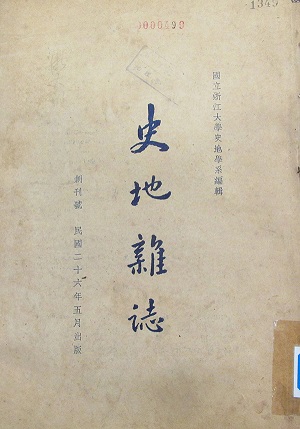 1000190
1345
國立浙江大學史地學系編輯
史地雜誌
創刊號 民國二十六年五月出版